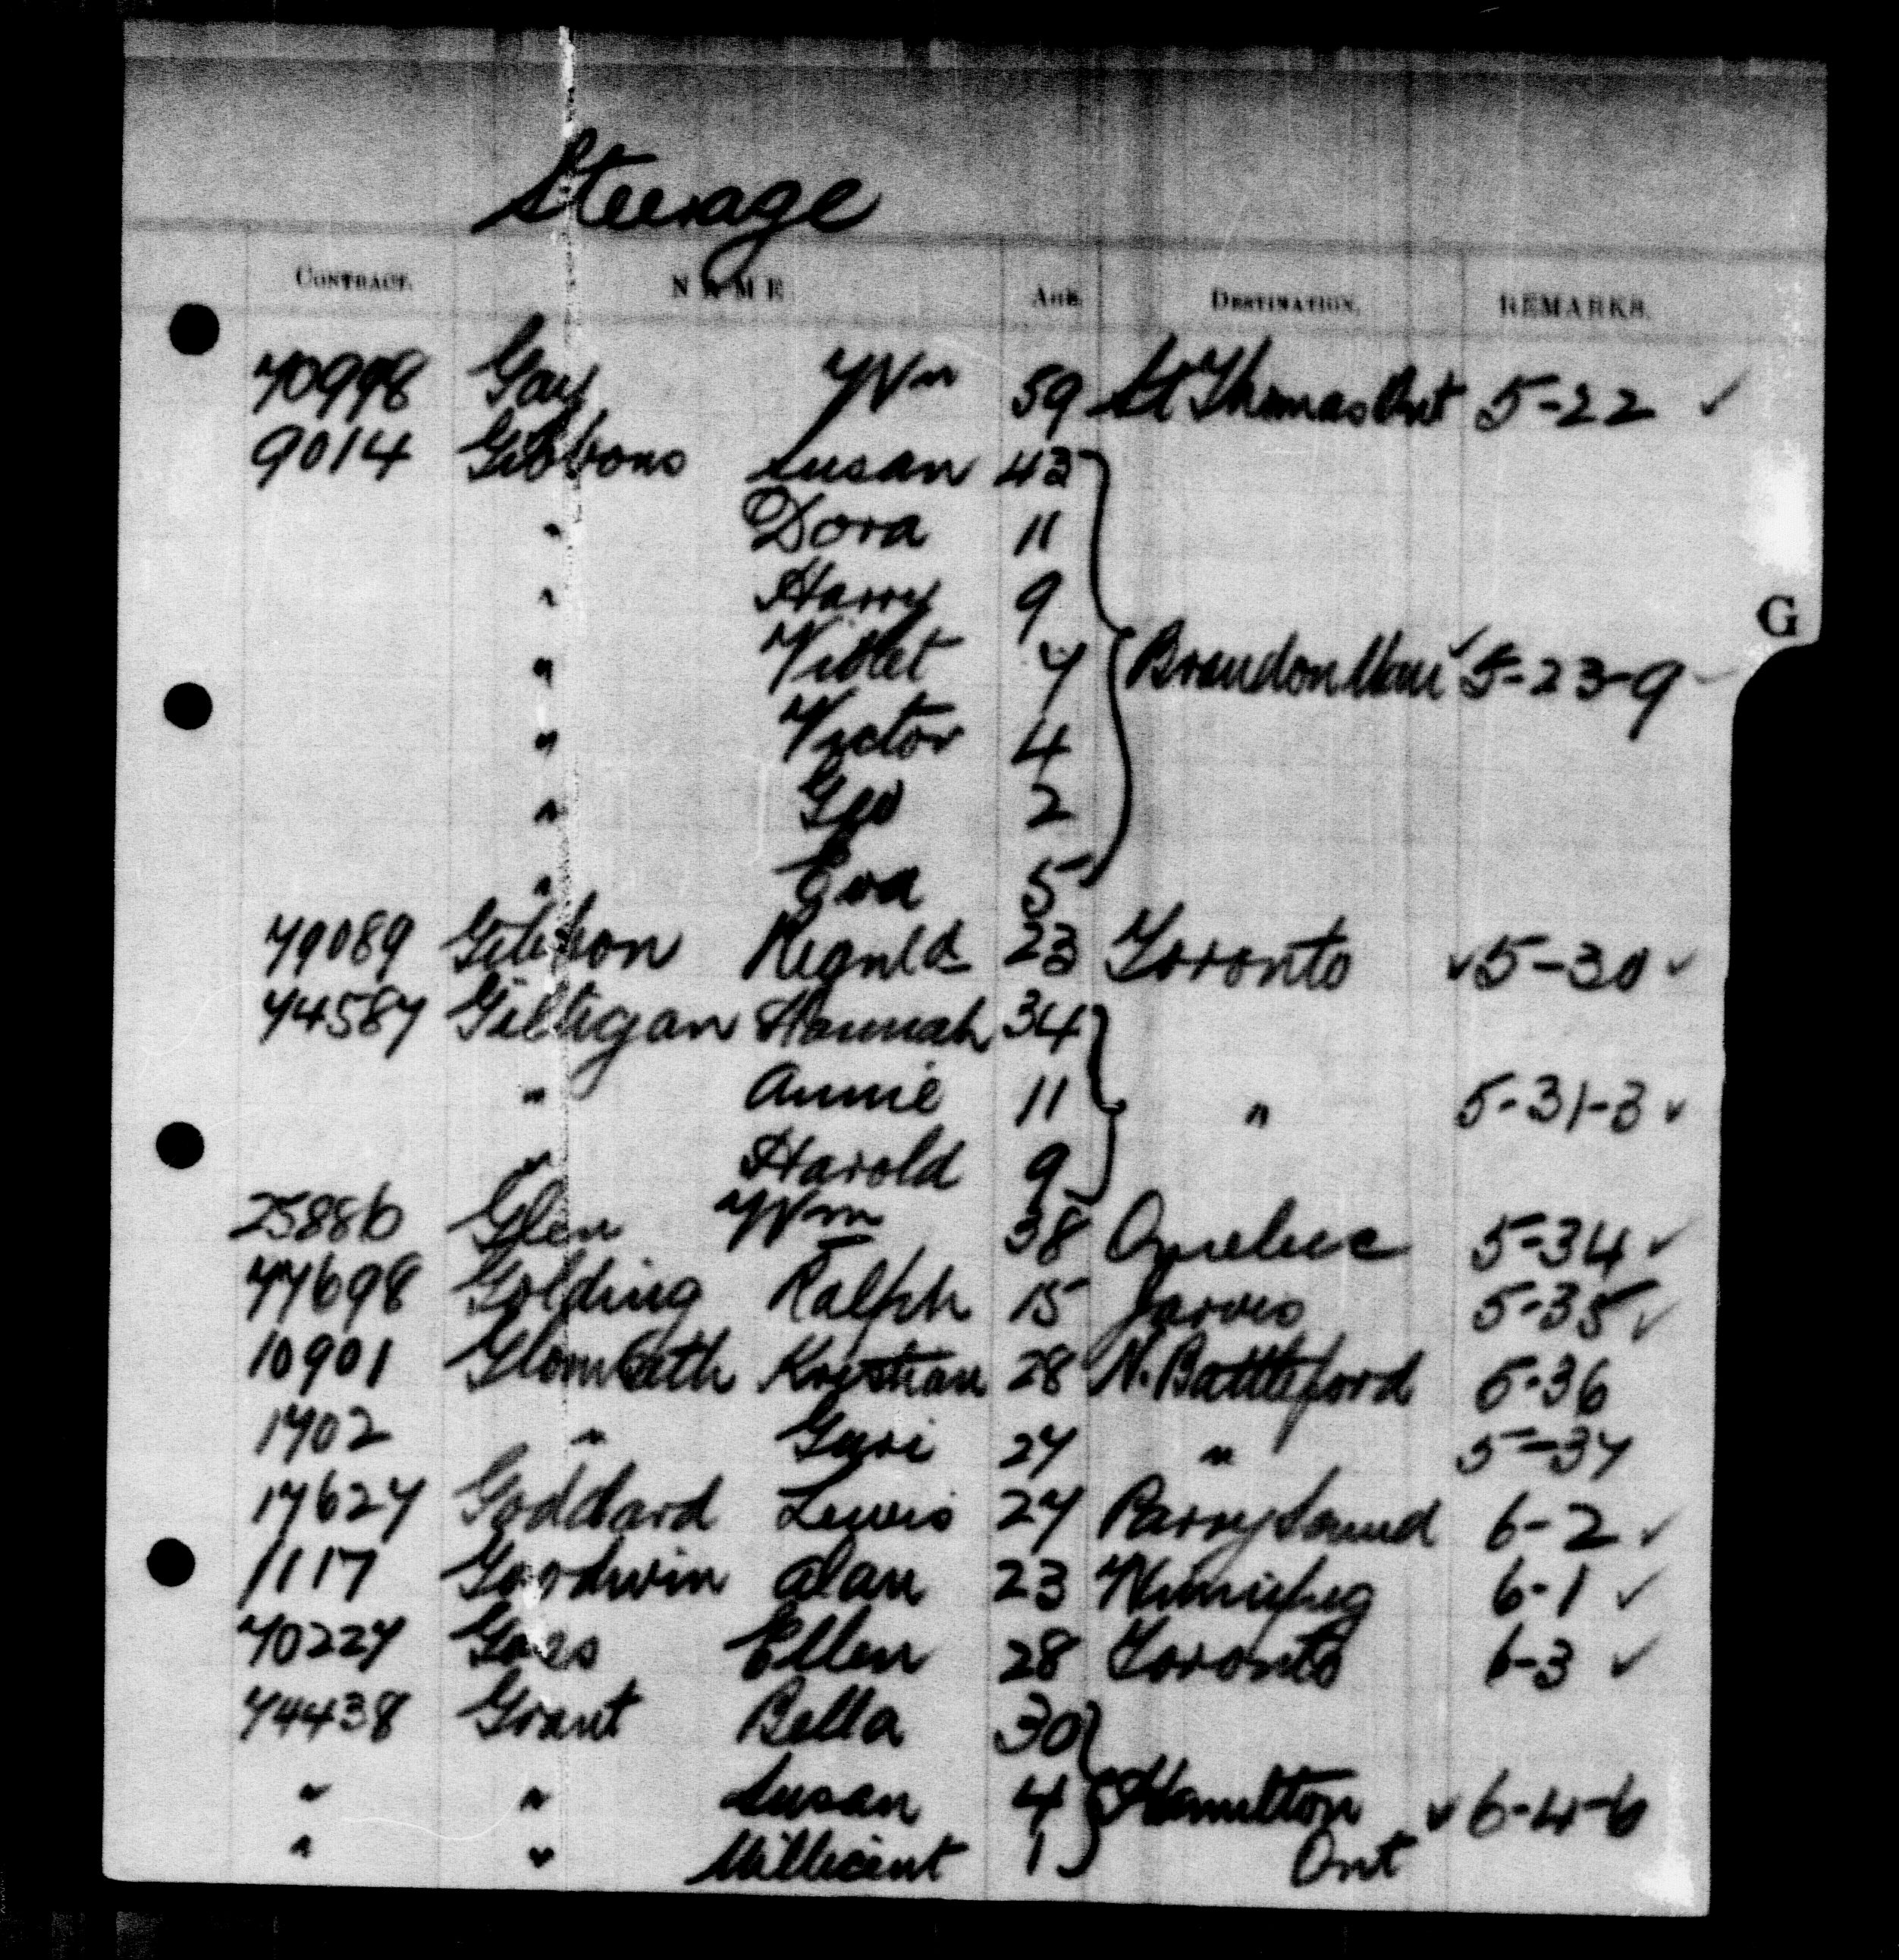 Steerage
CONTRACT. NAME AGE. DESTINATION. REMARKS.
70998 Gay Wm 59 St Thomas Ont 5-22 ✓
9014 Gibbons Susan 43
" Dora 11
" Harry 9
G
" Violet 7 Brandon Man ✓ 5-23-9
" Victor 4
" Geo 2
" Eva 5
79089 Gibbon Regnld 23 Toronto ✓ 5-30 ✓
74587 Gilligan Hannah 34
" Annie 11 " 5-31-3 ✓
" Harold 9
25886 Glen Wm 38 Quebec 5-34 ✓
77698 Golding Ralph 15 Jarvis 5-35 ✓
10901 Kristian 28 N. Battleford 5-36
1702 " Guri 27 " 5-37
17627 Goddard Lewis 27 Parry Sound 6-2 ✓
1117 Goodwin Alan 23 Winnipeg 6-1 ✓
70227 Ellen 28 Toronto 6-3 ✓
74438 Grant Bella 30
" " Susan 4 Hamilton ✓ 6-4-6
" " Millicent 1 Ont